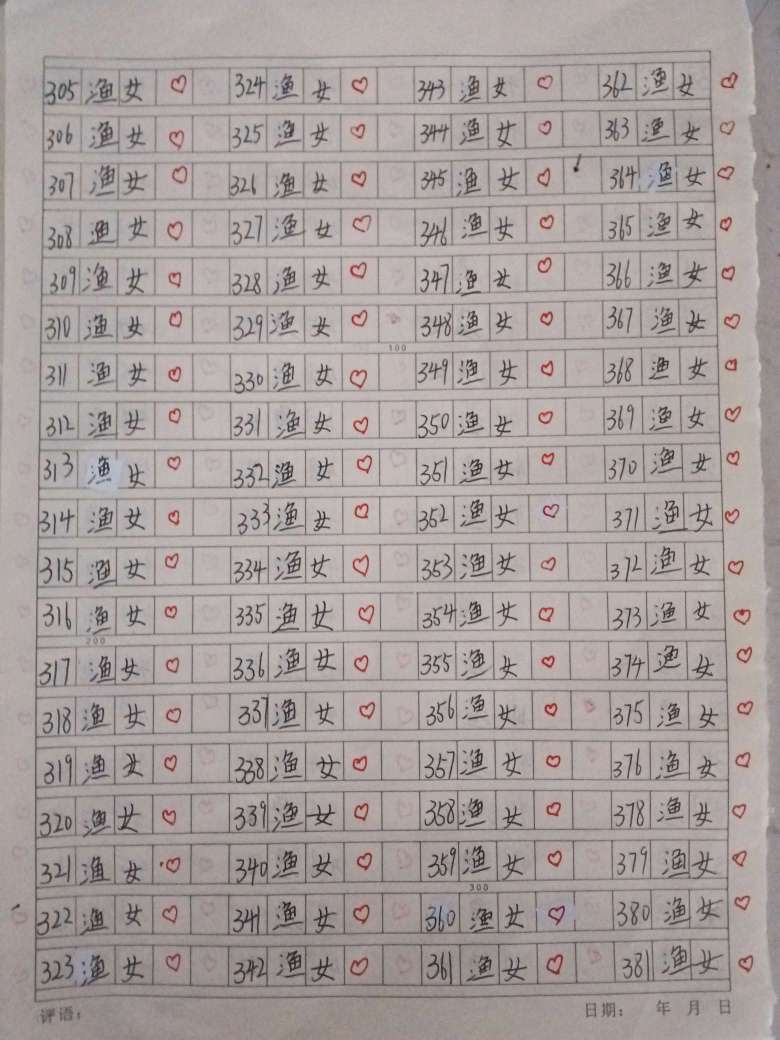 305 渔女 ♡ 324 渔女 ♡ 343 渔女 ♡ 362 渔女 ♡
306 渔女 ♡ 325 渔女 ♡ 344 渔女 ♡ 363 渔女 ♡
307 渔女 ♡ 326 渔女 ♡ 345 渔女 ♡ 364 渔女 ♡
308 渔女 ♡ 327 渔女 ♡ 346 渔女 ♡ 365 渔女 ♡
309 渔女 ♡ 328 渔女 ♡ 347 渔女 ♡ 366 渔女 ♡
310 渔女 ♡ 329 渔女 ♡ 348 渔女 ♡ 367 渔女 ♡
100
311 渔女 ♡ 330 渔女 ♡ 349 渔女 ♡ 368 渔女 ♡
312 渔女 ♡ 331 渔女 ♡ 350 渔女 ♡ 369 渔女 ♡
313 渔女 ♡ 332 渔女 ♡ 351 渔女 ♡ 370 渔女 ♡
314 渔女 ♡ 333 渔女 ♡ 352 渔女 ♡ 371 渔女 ♡
315 渔女 ♡ 334 渔女 ♡ 353 渔女 ♡ 372 渔女 ♡
316 渔女 ♡ 335 渔女 ♡ 354 渔女 ♡ 373 渔女 ♡
200
317 渔女 ♡ 336 渔女 ♡ 355 渔女 ♡ 374 渔女 ♡
318 渔女 ♡ 337 渔女 ♡ 356 渔女 ♡ 375 渔女 ♡
319 渔女 ♡ 338 渔女 ♡ 357 渔女 ♡ 376 渔女 ♡
320 渔女 ♡ 339 渔女 ♡ 358 渔女 ♡ 378 渔女 ♡
321 渔女 ♡ 340 渔女 ♡ 359 渔女 ♡ 379 渔女 ♡
300
322 渔女 ♡ 341 渔女 ♡ 360 渔女 ♡ 380 渔女 ♡
323 渔女 ♡ 342 渔女 ♡ 361 渔女 ♡ 381 渔女 ♡
评语： 日期： 年 月 日